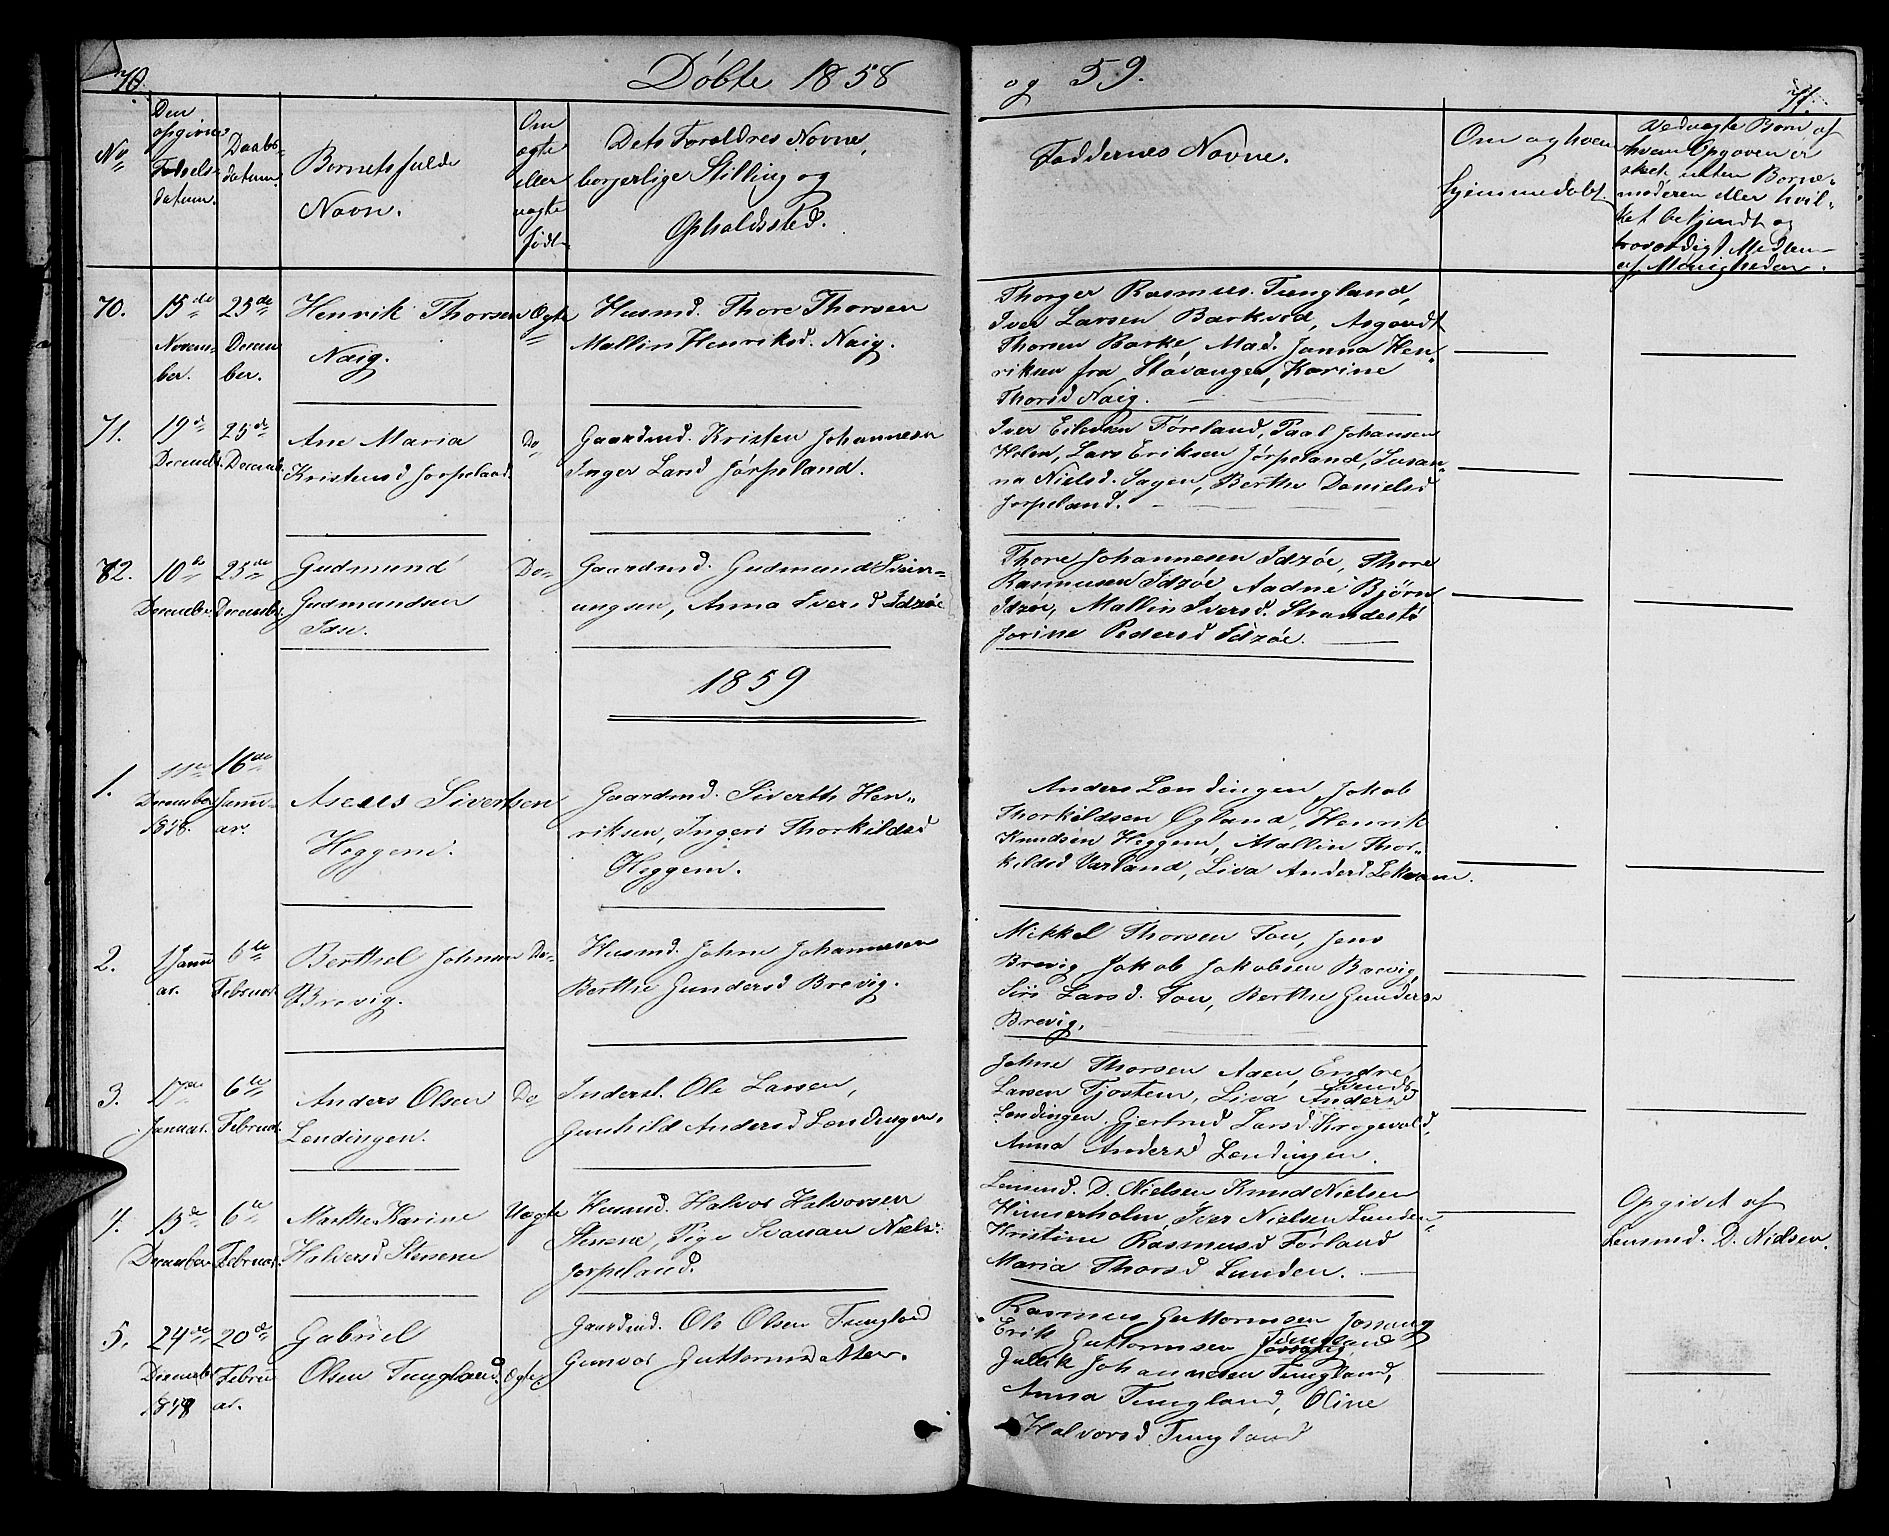 70.
Døbte 1858
og 59.
71.
No
Den
opgivne
Fødsels-
datum.
Daabs-
datum.
Barnets fulde
Navn.
Om
ægte
eller
uægte
født
Dets Foreldres Navne,
borgerlige Stilling og
Opholdssted.
Faddernes Navne.
Om og hvem
hjemmedøbt.
Veduægte Børn af
hvem Opgaven er
skeet, uden Barne-
moderen eller hvil-
ket bekjendt og
troværdigt Medlem
af Menigheden.
70.
15de
Novem-
ber.
25de
Decem
ber.
Henrik Thorsen
Naig.
Ægte
Husmd. Thore Thorsen
Mallin Henriksd. Naig.
Thorger Rasmus. Tungland,
Iver Larsen Barkved, Asgaudt
Thorsen Barke, Mad. Janna Hen-
riksen fra Stavanger, Karine
Thorsd Naig.
71.
19de
Decembr.
25de
Decemb.
Ane Maria
Kristensd Jørpeland.
Do
Gaardmd. Kristen Johannesen
Inger Larsd Jørpeland.
Iver Eilevsen Føreland, Paal Johansen
Holen, Lars Eriksen Jørpeland, Susan-
na Nielsd. Sagen, Berthe Danielsd
Jørpeland.
72.
10de
December.
25de
December.
Gudmund
Gudmundsen
Idse.
Do-
Gaardmd. Gudmund Svein-
ungsen, Anna Iversd Idzøe
Thore Johannesen Idzøe, Thore
Rasmusen Idzøe, Aadne Bjørn
Idzøe, Mallin Iversd. Strandestø
Jorine Pedersd Idzøe.
1859
1.
11te
December
1858.
16de
Janu-
ar.
Aseus Sivertsen
Heggem.
Gaardmd. Siverth Hen-
riksen, Ingeri Thorkildsd
Heggem.
Anders Lændingen, Jakob
Thorkildsen Øgland, Henrik
Knudsen Heggem, Mallin Thor-
kildsd Varland, Liva Andersd Lekvam.
2.
1 Janu
ar.
6te
Februar.
Berthel Johnsen
Brevig.
Do-
Husmd. Johne Johannesen
Berthe Gundersd Brevig.
Mikkel Thorsen Tou, Jens
Brevig, Jakob Jakobsen Brevig,
Siri Larsd. Tou, Berthe Gunders
Brevig.
3.
17de
Januar.
6te
Februar.
Anders Olsen
Lændingen.
Do
Inderst. Ole Larsen,
Gunhild Andersd Lændingen.
Johne Thorsen Aaen, Endre
Larsen Tjosten, Liva Andersd
Lændingen, Gjertrud Larsd. Krogevold,
Anna Andersd Lændingen.
4.
13de
December
6te
Februar.
Marthe Karine
Halvorsd Stenene
Uægte
Husmd. Halvor Halvorsen
Stenene, Pige Svanau Niels-
Jørpeland.
Lensmd. D. Nielsen Knud Nielsen
Himmerholm, Iver Nielsen Lunden,
Kristine Rasmusd Førland
Maria Thorsd Lunden.
Opgivet af
Lensmd. D. Nielsen.
5.
24de
December
1858
20de
Febru
ar.
Gabriel
Olsen Tungland.
Ægte
Gaardmd. Ole Olsen Tungland
Gunvor Guttormsdatter.
Rasmus Guttormsen Jøssang
Erik Guttormsen Tungland
Jullik Johannesen Tungland,
Anna Tungland, Oline
Halvorsd Tungland